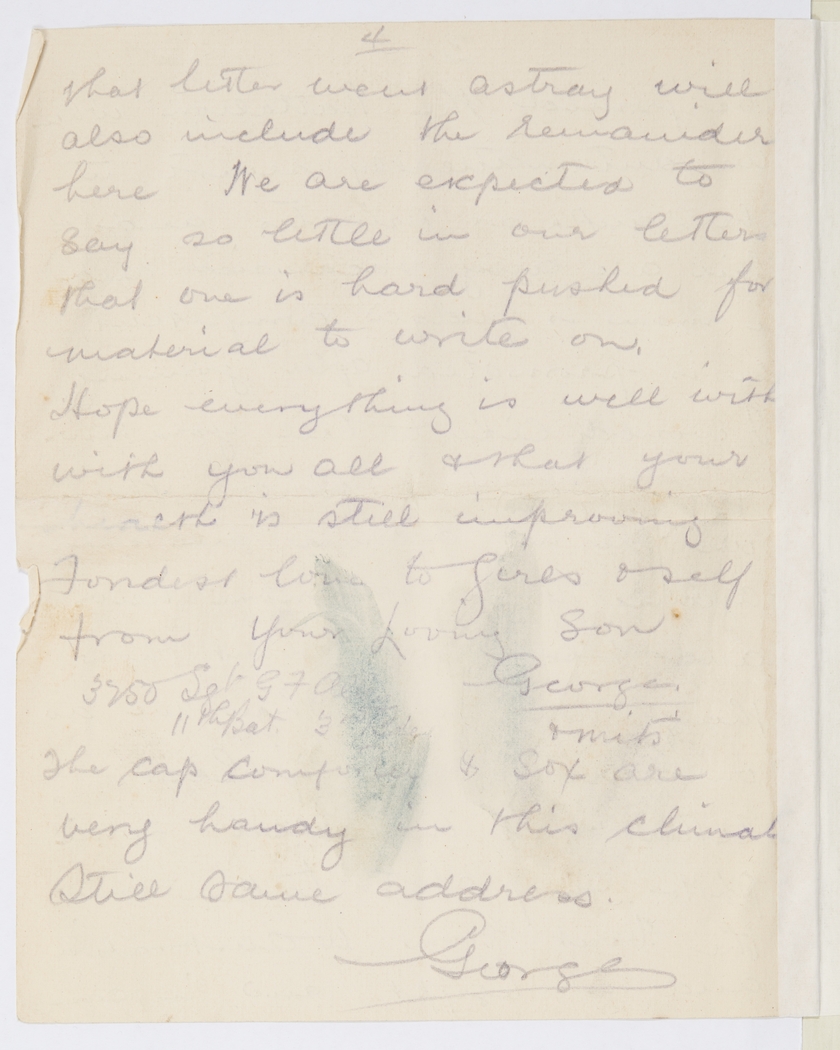 4
that letter went astray will
also include the remainder
here We are expected to
say so little in our letters
that one is hard pushed for
material to write on.
Hope everything is well with
with you all & that your
health is still improving
Fondest love to Girls & self
from Your Loving Son
3250 Sgt G F
George.
11th Bat. 3
& mits
The cap comforter & Sox are
very handy in this climat
Still same address.
George